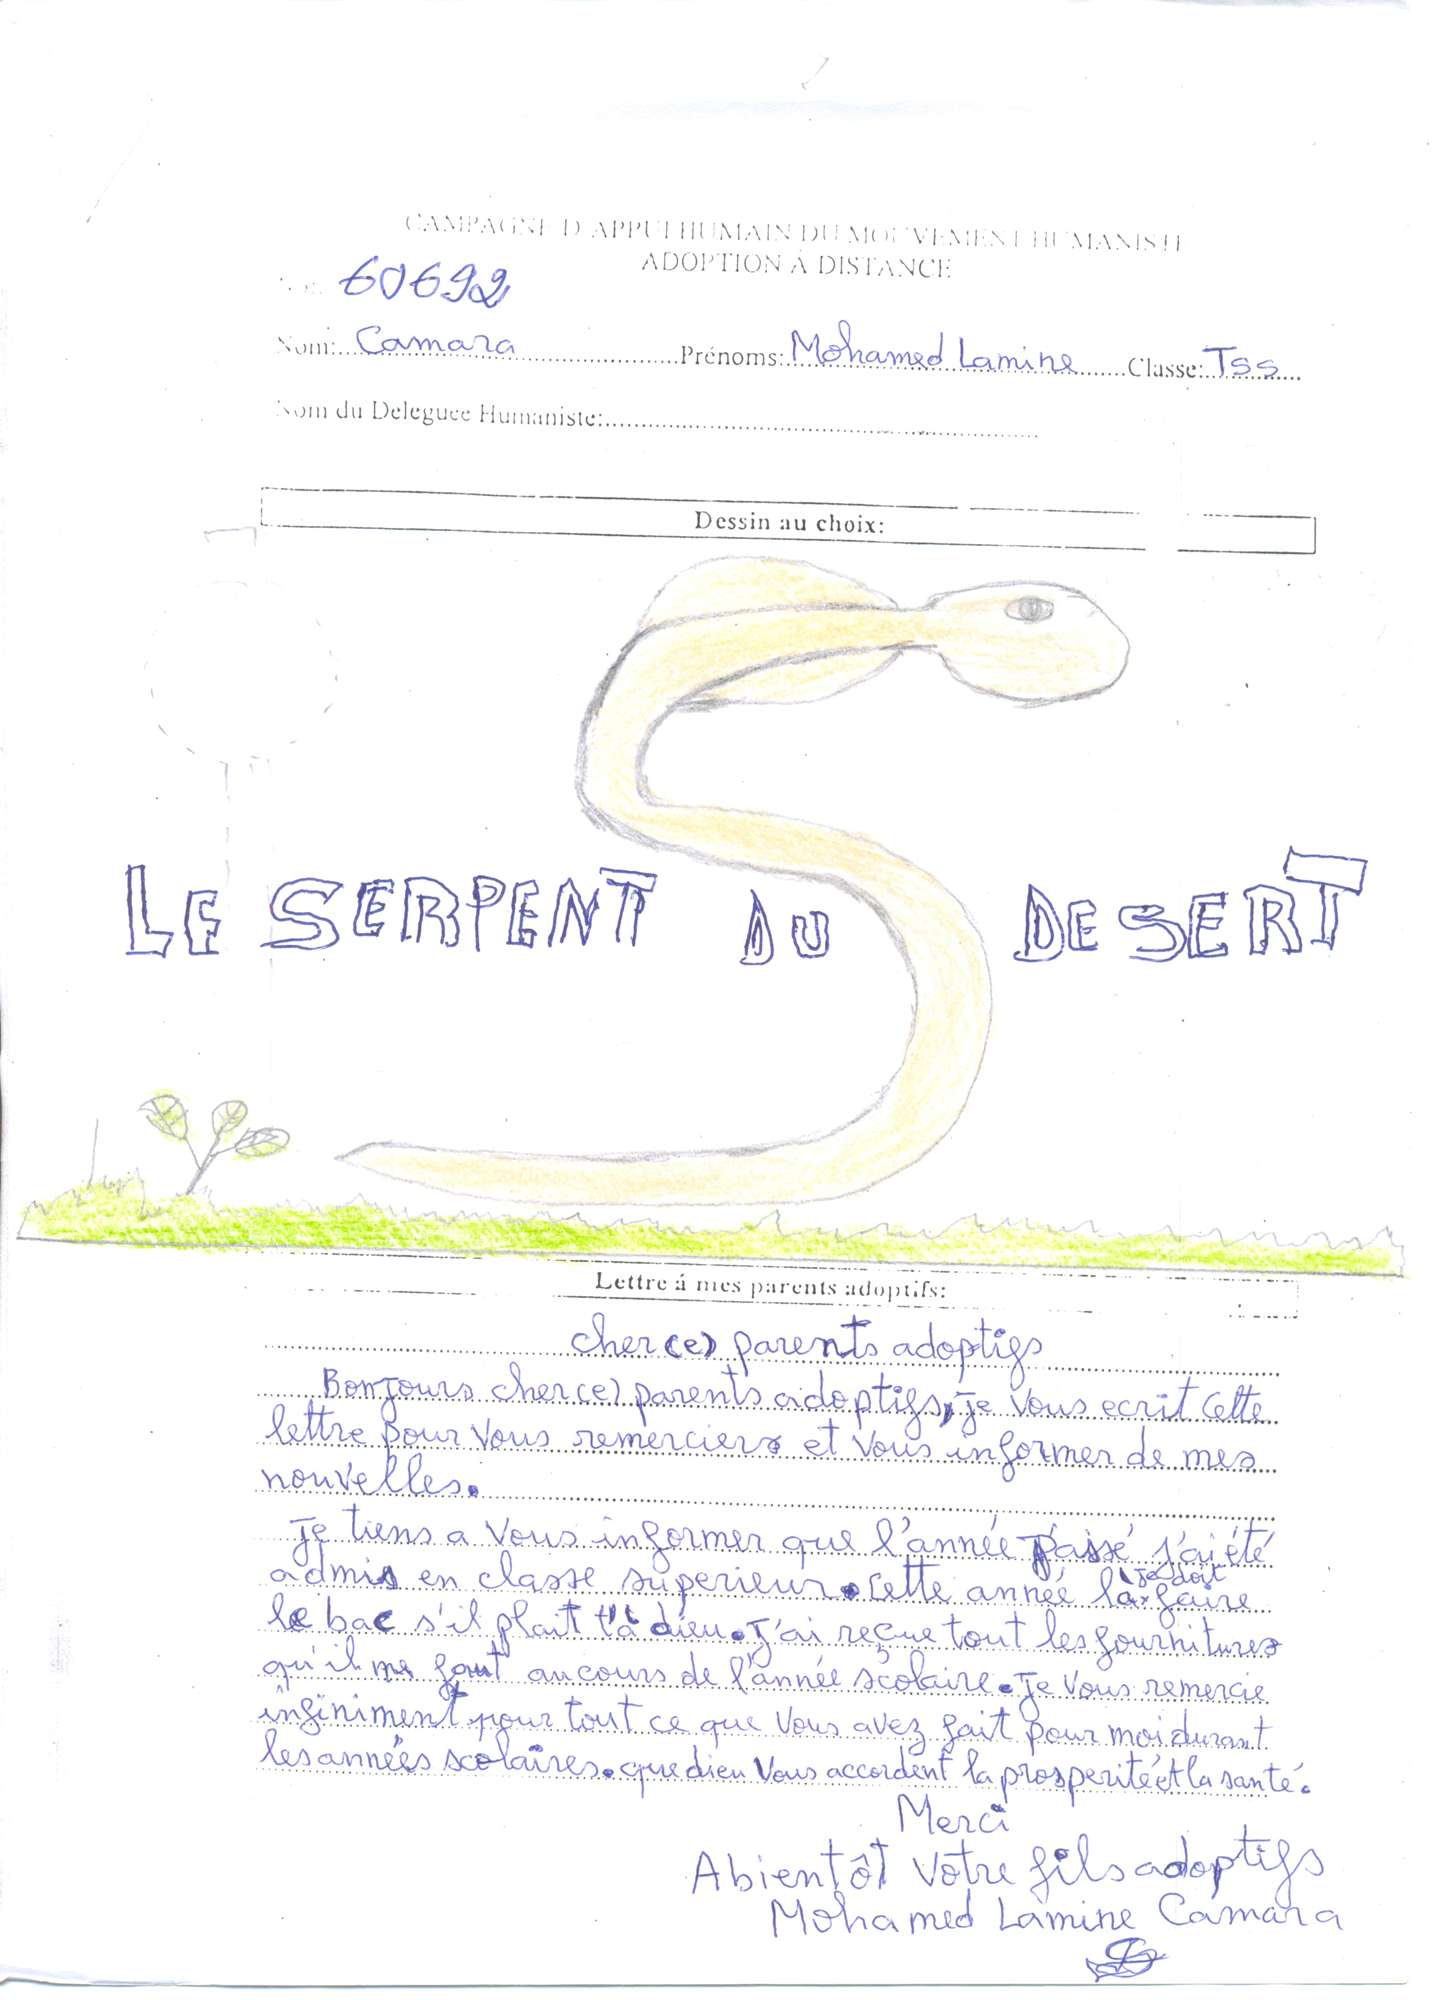 CAMPAGNE D'APPUI HUMAIN DU MOUVEMENT HUMANISTE
ADOPTION À DISTANCE
60692
Nom: Camara Prénoms: Mohamed Lamine Classe: TSS
Nom du Deleguee Humaniste:
Dessin au choix:
LE SERPENT DU DESERT
Lettre á mes parents adoptifs:
cher(e) parents adoptifs
Bonjours cher(e) parents adoptifs, je vous ecrit cette
lettre pour vous remercier et vous informer de mes
nouvelles.
je tiens a vous informer que l'année passé j'ai été
admis en classe superieur. cette année là je doit faire
le bac s'il plait à dieu. j'ai reçue tout les fournitures
qu'il me faut au cours de l'année scolaire. je vous remercie
infiniment pour tout ce que vous avez fait pour moi durant
les années scolaires. que dieu vous accordent la prosperité et la santé.
Merci
Abientôt votre fils adoptifs
Mohamed Lamine Camara